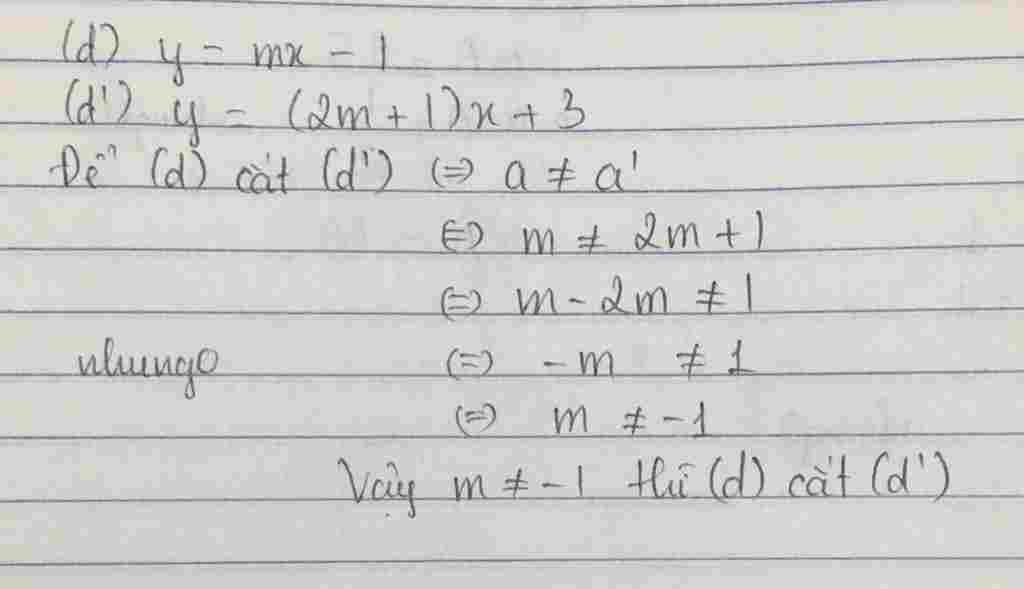 (d) y = mx - 1
(d') y = (2m + 1)x + 3
Để (d) cắt (d') (=) a ≠ a'
(=) m ≠ 2m + 1
(=) m - 2m ≠ 1
nhungo (=) - m ≠ 1
(=) m ≠ - 1
Vậy m ≠ - 1 thì (d) cắt (d')